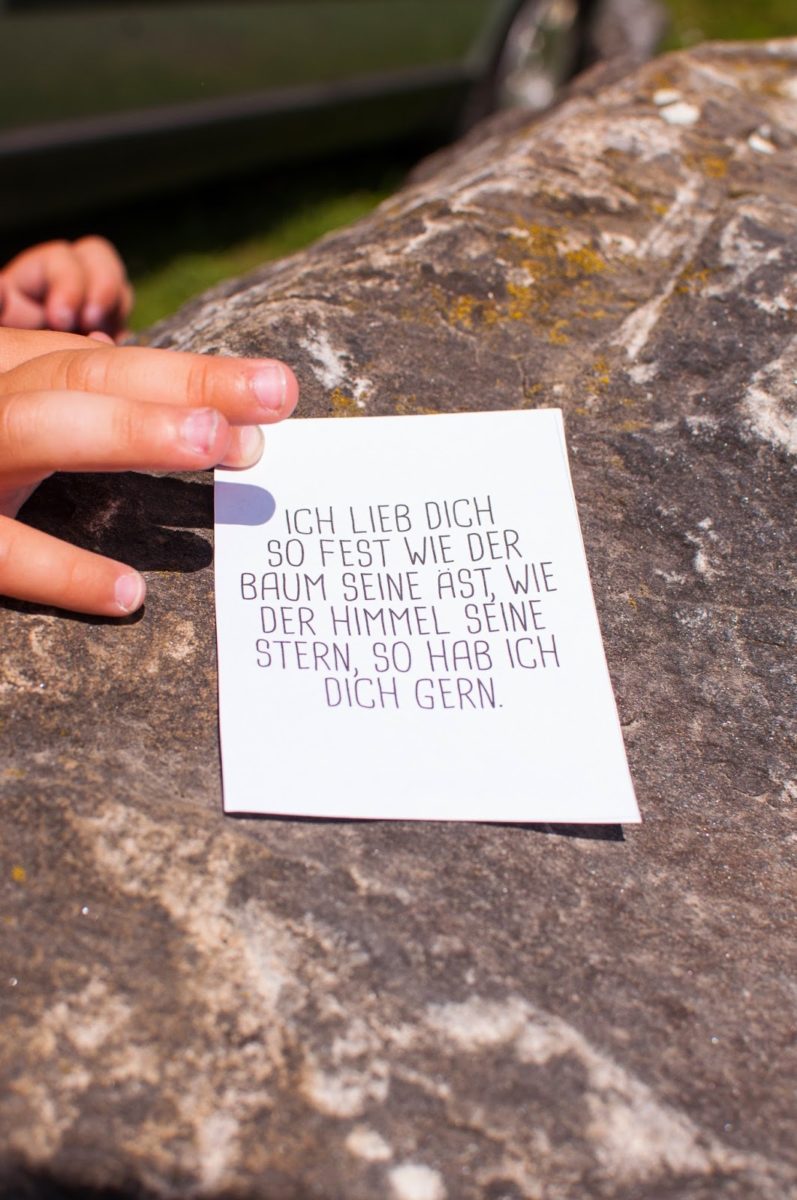 ICH LIEB DICH
SO FEST WIE DER
BAUM SEINE ÄST, WIE
DER HIMMEL SEINE
STERN, SO HAB ICH
DICH GERN.